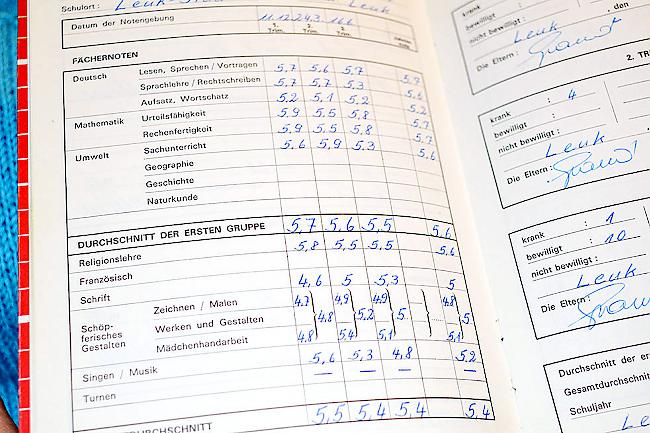 Schulort: Leuk-
Leuk
Datum der Notengebung 11.12. 24.3. 16.6
1. Trim. 2. Trim. 3. Trim.
FÄCHERNOTEN
Deutsch Lesen, Sprechen / Vortragen 5,7 5,6 5,7 5,7
Sprachlehre / Rechtschreiben 5,7 5,7 5,3 5,6
Aufsatz, Wortschatz 5,2 5,1 5,2 5,2
Mathematik Urteilsfähigkeit 5,9 5,5 5,8 5,7
Rechenfertigkeit 5,9 5,5 5,8 5,7
Umwelt Sachunterricht 5,6 5,9 5,3 5,6
Geographie
Geschichte
Naturkunde
DURCHSCHNITT DER ERSTEN GRUPPE 5,7 5,6 5,5 5,6
Religionslehre 5,8 5,5 5,5 5,6
Französisch
Schrift 4,6 5 5,3 5
Schöp- Zeichnen / Malen 4,7 4,9 4,9 4,8
ferisches Werken und Gestalten 4,8 5,2 5 5
Gestalten Mädchenhandarbeit 4,8 5,4 5,1 5,1
Singen / Musik 5,6 5,3 4,8 5,2
Turnen — — — —
DURCHSCHNITT 5,5 5,4 5,4 5,4
krank :
bewilligt :
nicht bewilligt :
Leuk
Die Eltern:
2. TR
krank : 4
bewilligt :
nicht bewilligt :
Leuk
Die Eltern:
krank : 1
bewilligt : 10
nicht bewilligt :
Leuk
Die Eltern:
Durchschnitt der er
Gesamtdurchschnit
Schuljahr